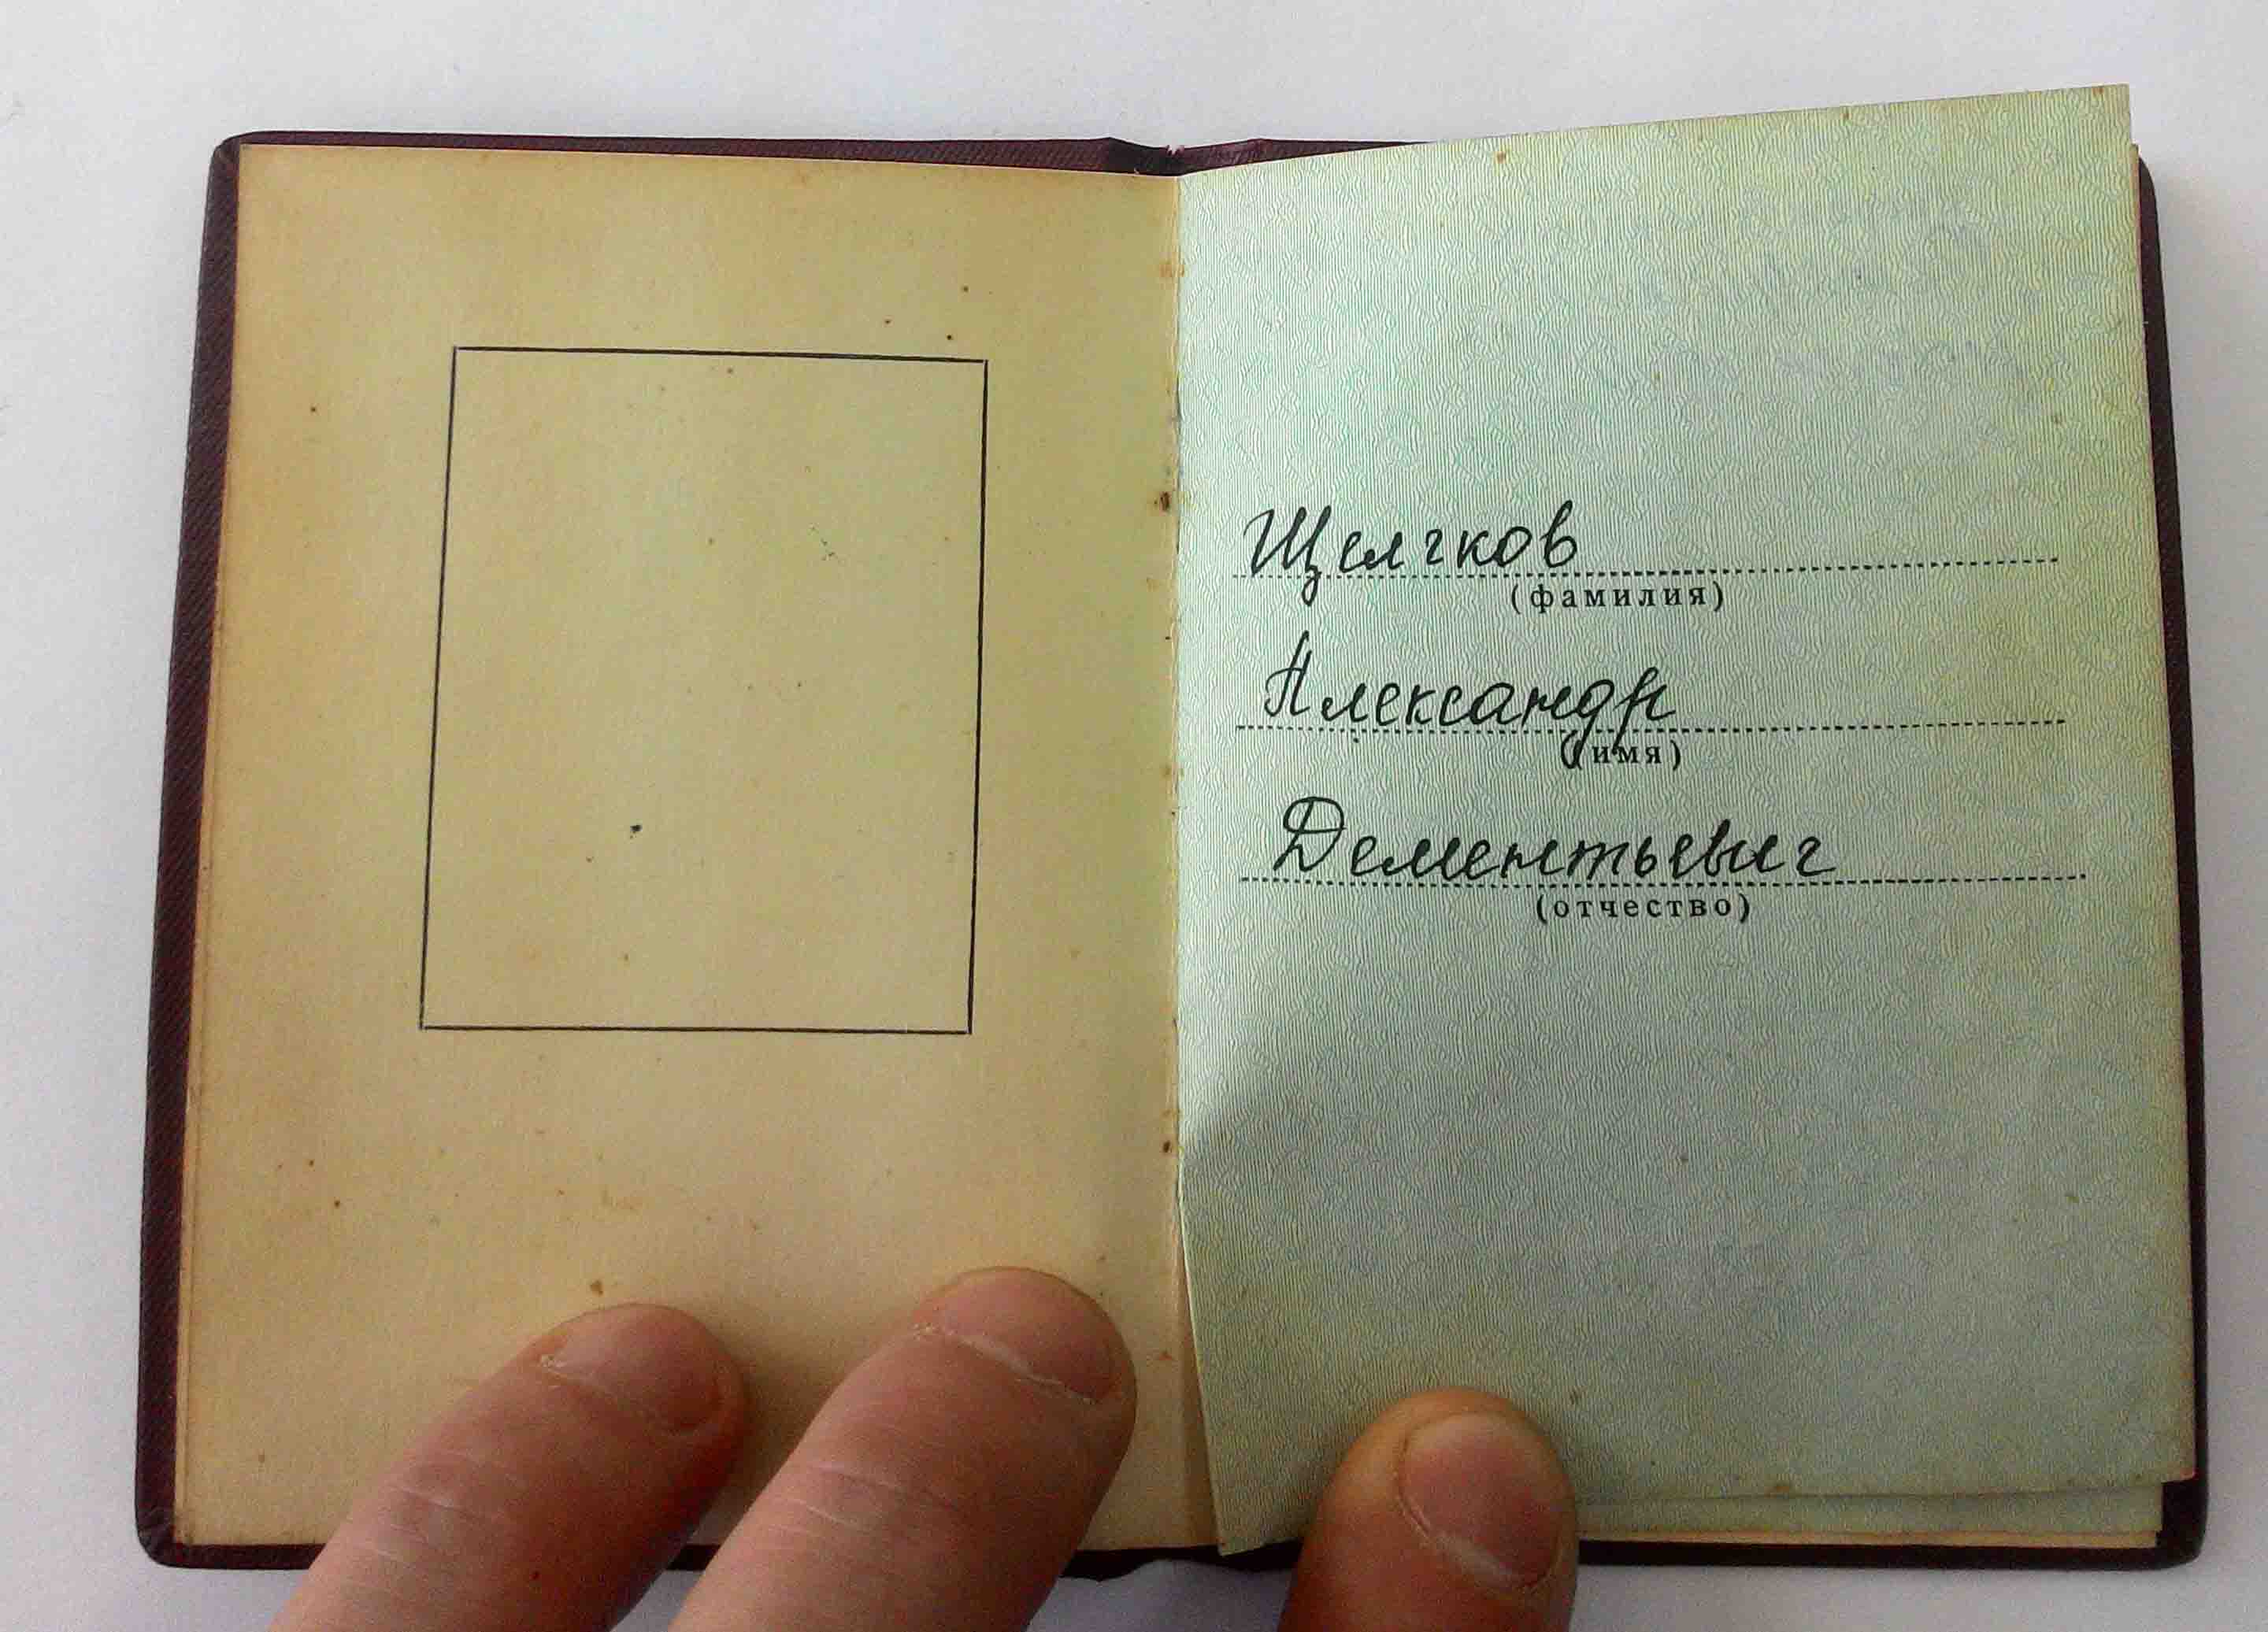 Щелчков
(фамилия)
Александр
(имя)
Дементьевич
(отчество)